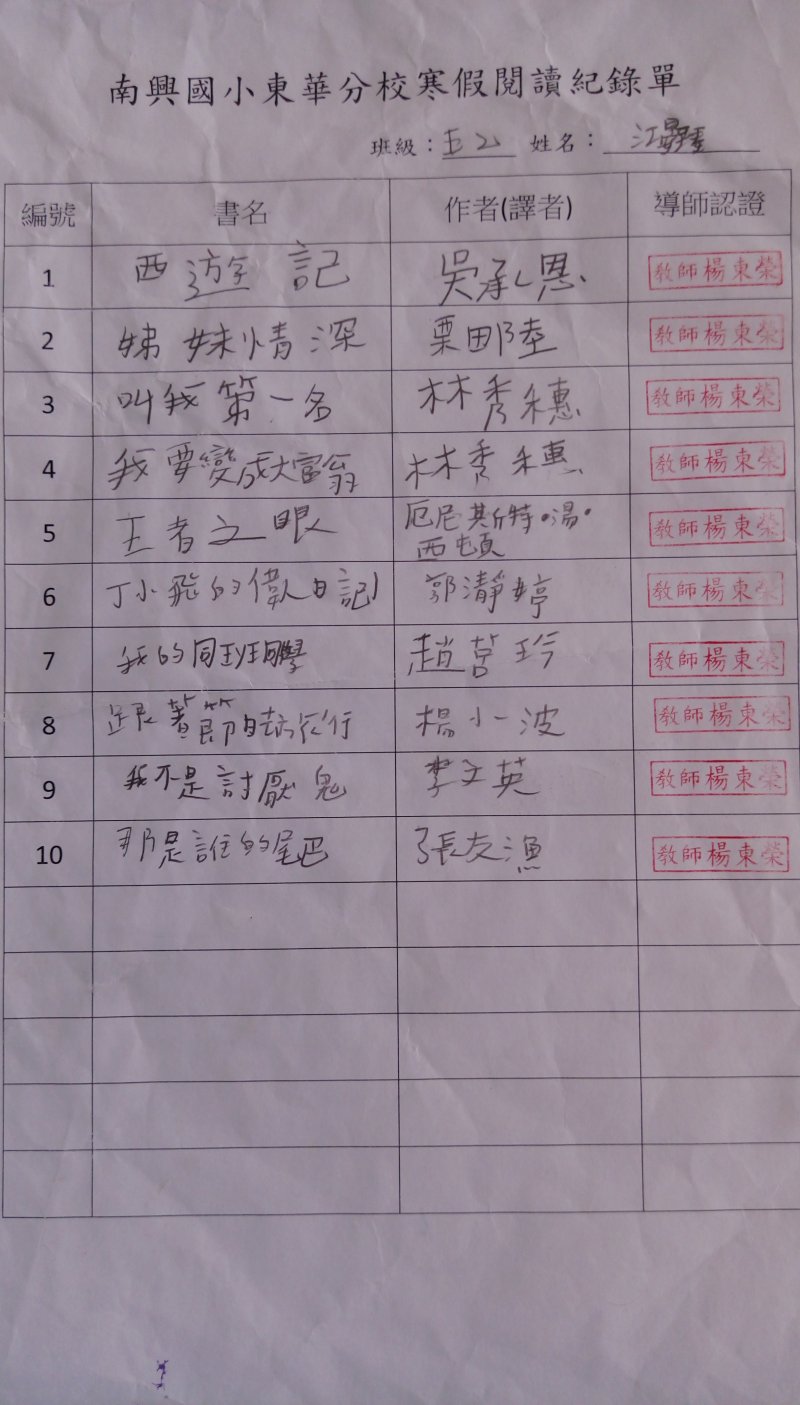 南興國小東華分校寒假閱讀紀錄單
班級：五乙 姓名：江
編號 書名 作者(譯者) 導師認證
1 西遊記 吳承恩 教師楊東榮
2 姊妹情深 栗田陸 教師楊東榮
3 叫我第一名 林秀穗 教師楊東榮
4 我要變成大富翁 林秀穗 教師楊東榮
5 王者之眼 厄尼斯特•湯•西頓 教師楊東榮
6 丁小飛的偉人日記 郭瀞婷 教師楊東榮
7 我的同班同學 趙莒玲 教師楊東榮
8 跟著節日去旅行 楊小波 教師楊東榮
9 我不是討厭鬼 李文英 教師楊東榮
10 那是誰的尾巴 張友漁 教師楊東榮